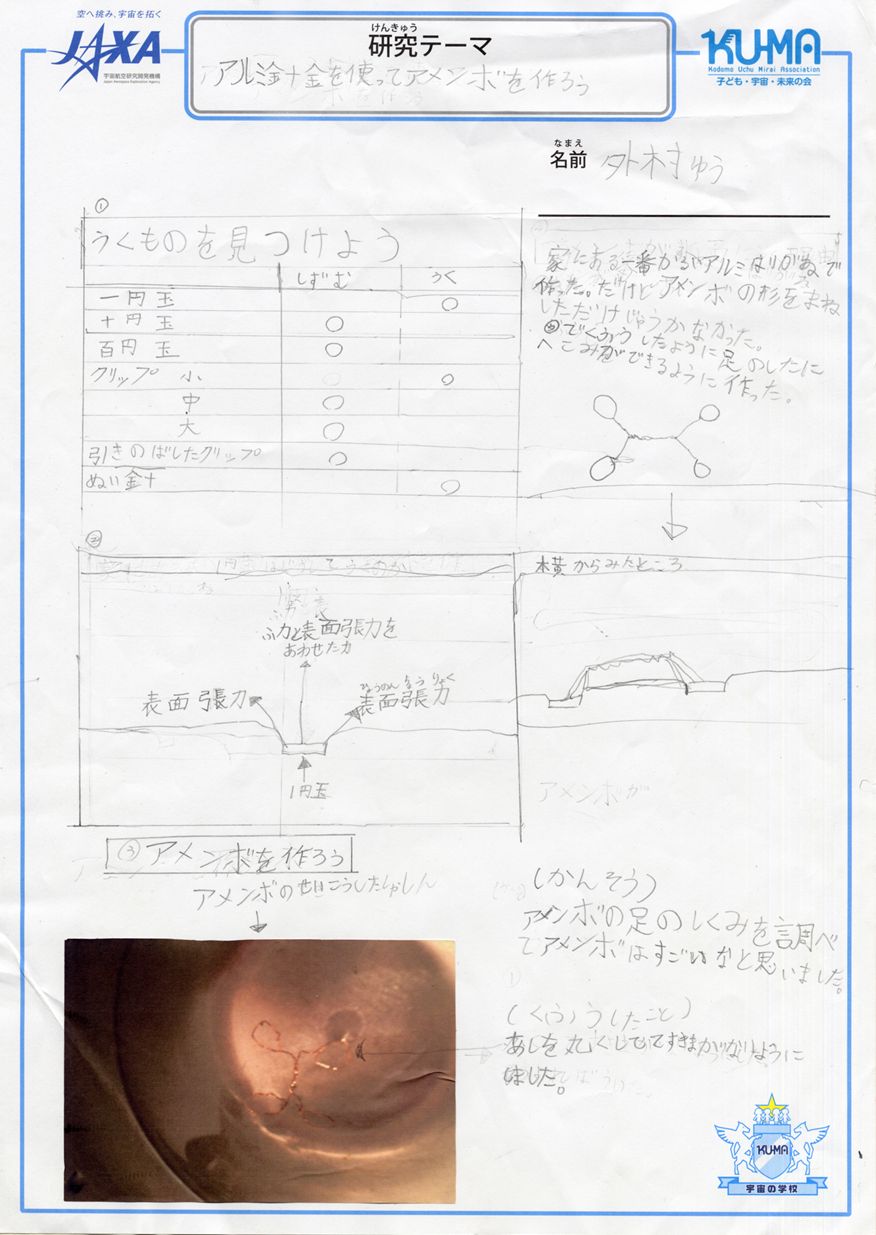 空へ挑み、宇宙を拓く
JAXA
宇宙航空研究開発機構
Japan Aerospace Exploration Agency
けんきゅう
研究テーマ
アルミ針金を使ってアメンボを作ろう
KU-MA
Kodomo Uchu Mirai Association
子ども・宇宙・未来の会
なまえ
名前
外村きゅう
①
うくものを見つけよう
しずむ うく
一円玉 ○
十円玉 ○
百円玉 ○
クリップ 小 ○
中 ○
大 ○
引きのばしたクリップ ○
ぬい針 ○
家にある一番かるいアルミはりがねで
作った。だけどアメンボの形をまね
しただけじゃうかなかった。
のでくふうしたように足のしたに
へこみができるように作った。
②
ふ力と表面張力を
あわせた力
表面張力
ひょうめんちょうりょく
表面張力
1円玉
横からみたところ
アメンボが
③アメンボを作ろう
アメンボのせいこうしたしゃしん
(かんそう)
アメンボの足のしくみを調べ
てアメンボはすごいなと思いました。
(くふうしたこと)
あしを丸くしてすきまがないように
しました。
KU-MA
宇宙の学校